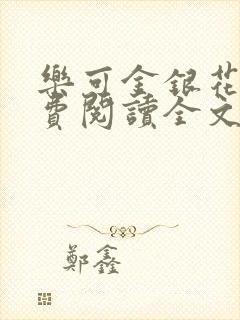 樂可金銀花
費閱讀全文
鄭鑫